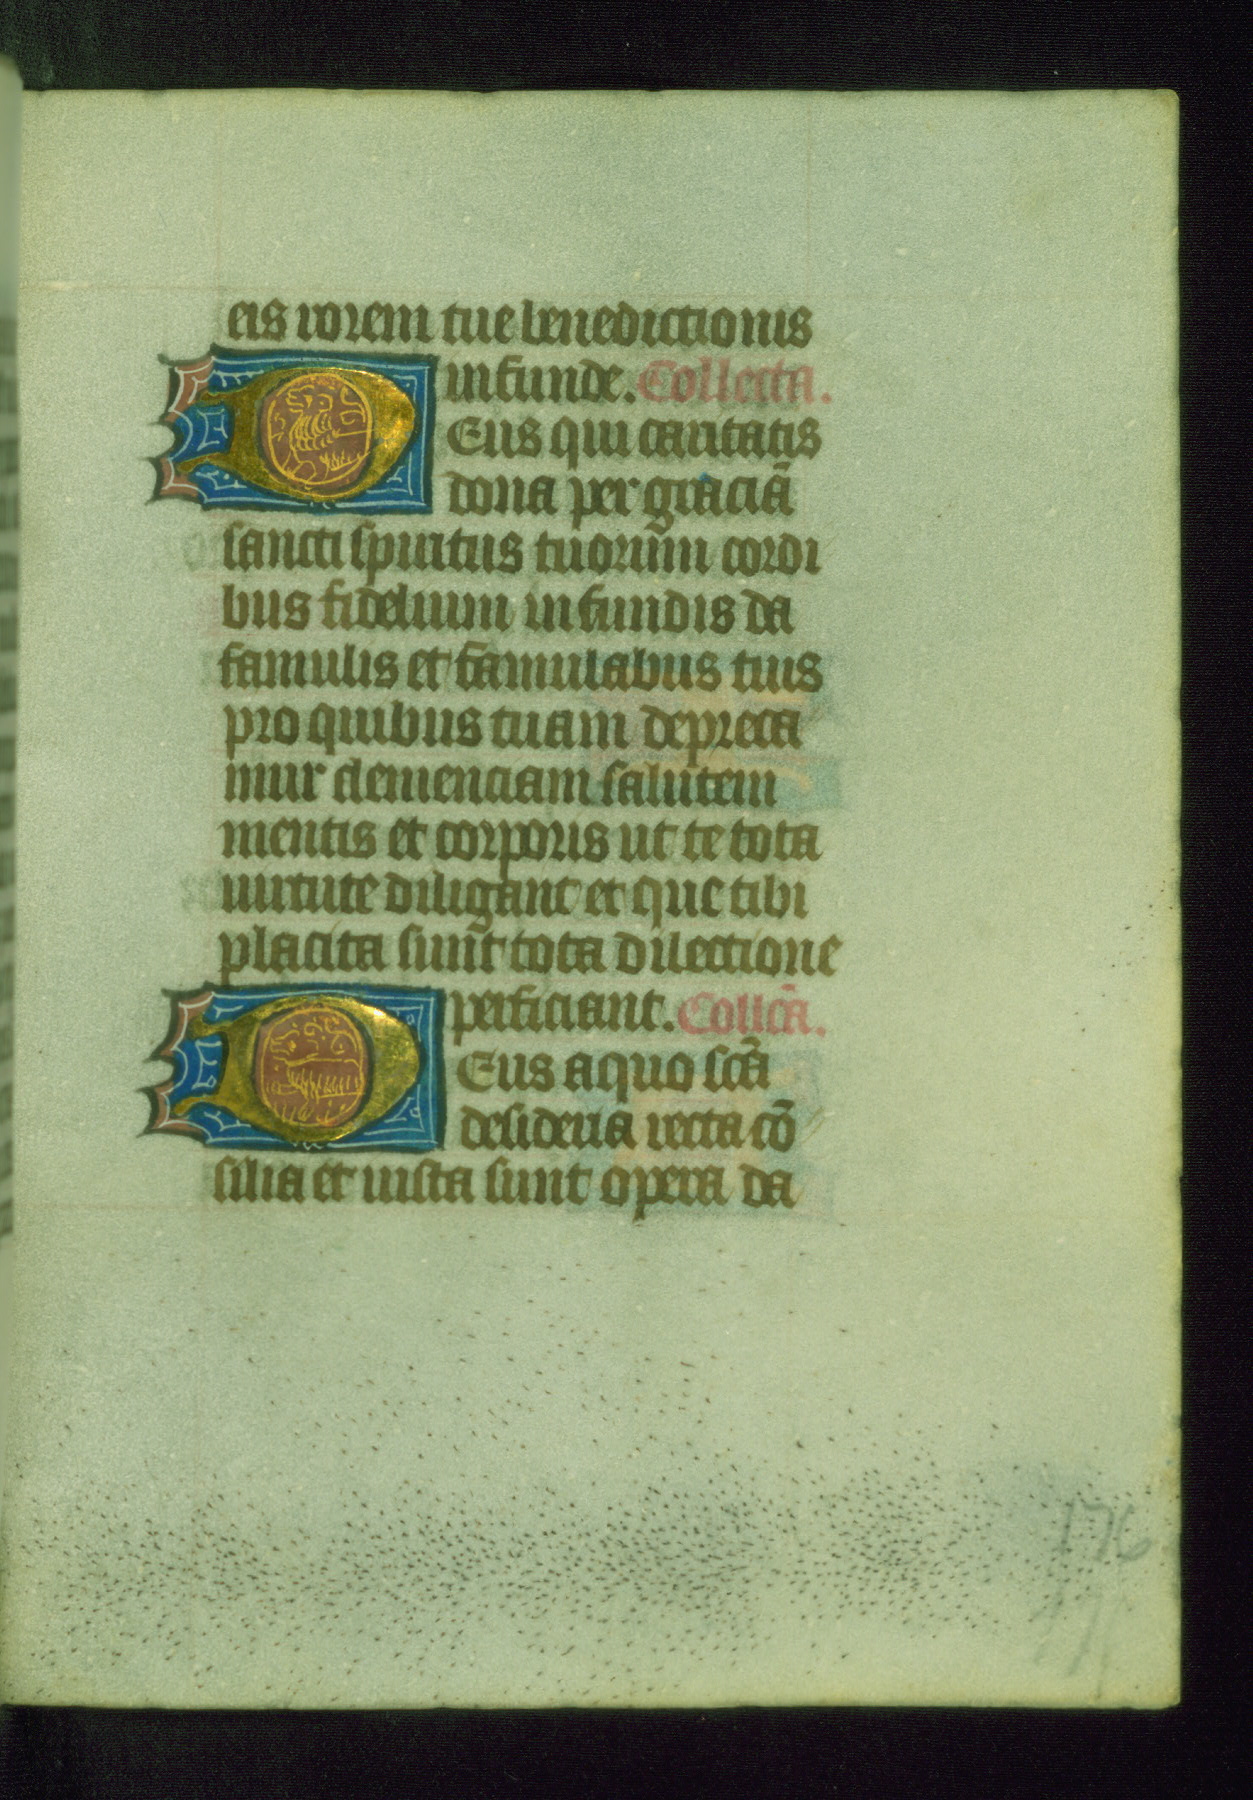 eis rorem tue benedictionis
infunde. Collecta.
DEus qui caritatis
dona per graciā
sancti spiritus tuorum cordi
bus fidelium infundis da
famulis et famulabus tuis
pro quibus tuam depreca
mur clemenciam salutem
mentis et corporis ut te tota
uirtute diligant et que tibi
placita sunt tota dilectione
perficiant. Collcā.
DEus a quo scā
desideria recta cō
silia et iusta sunt opera da
176